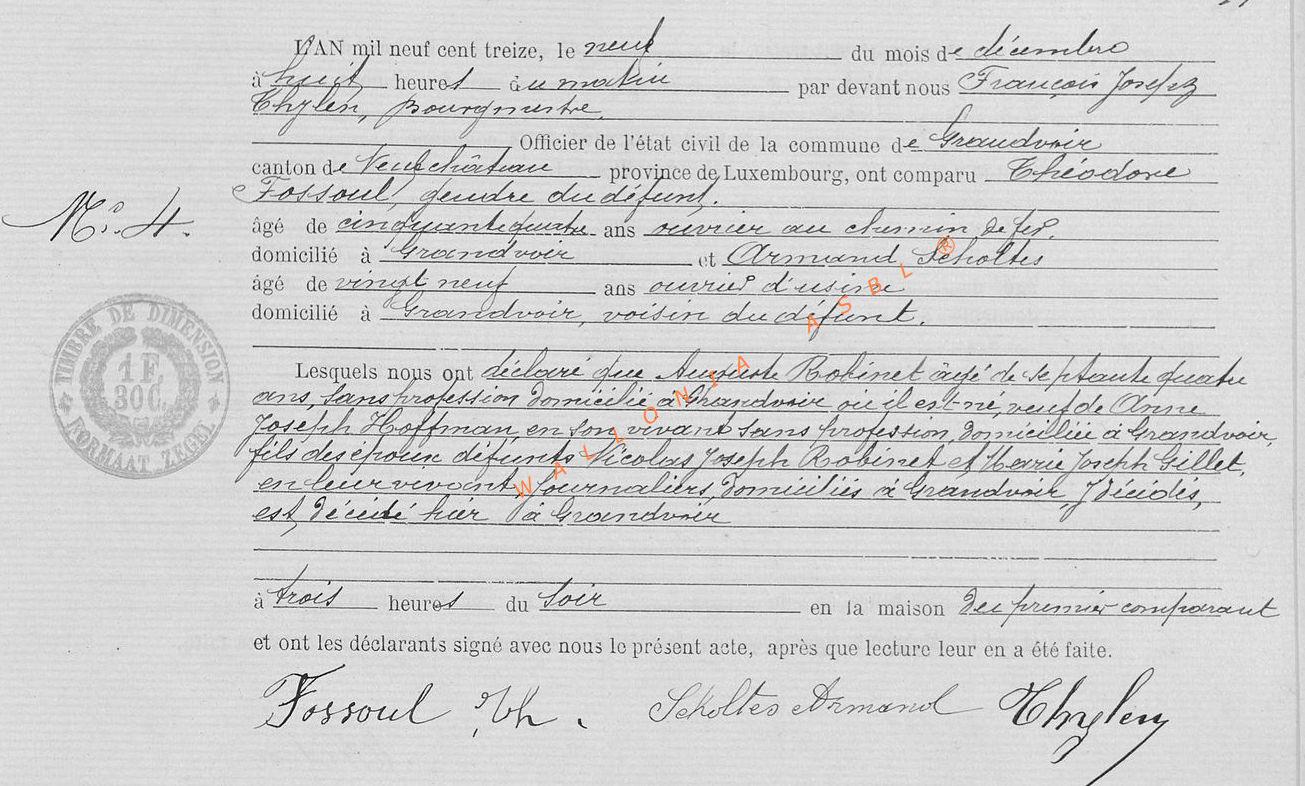 L'AN mil neuf cent treize, le neuf du mois de décembre
à huit heures du matin par devant nous François Joseph
Thylen, bourgmestre,
Officier de l'état civil de la commune de Grandvoir
canton de Neufchâteau province de Luxembourg, ont comparu Théodore
Fossoul, gendre du défunt,
âgé de cinquante quatre ans ouvrier au chemin de fer,
domicilié à Grandvoir et Armand Scholtes
âgé de vingt neuf ans ouvrier d'usine
domicilié à Grandvoir, voisin du défunt.
N° 4.
TIMBRE DE DIMENSION
1 F
30 C.
FORMAAT ZEGEL
Lesquels nous ont déclaré que Auguste Robinet âgé de septante quatre
ans, sans profession domicilié à Grandvoir où il est né, veuf de Anne
Joseph Hoffman, en son vivant sans profession, domiciliée à Grandvoir,
fils des époux défunts Nicolas Joseph Robinet et Marie Joseph Gillet,
en leur vivant journaliers, domiciliés à Grandvoir, y décédés,
est décédé hier à Grandvoir
à trois heures du soir en la maison du premier comparant
et ont les déclarants signé avec nous le présent acte, après que lecture leur en a été faite.
Fossoul Th. Scholtes Armand Thylen
WALLONIA ASBL ®